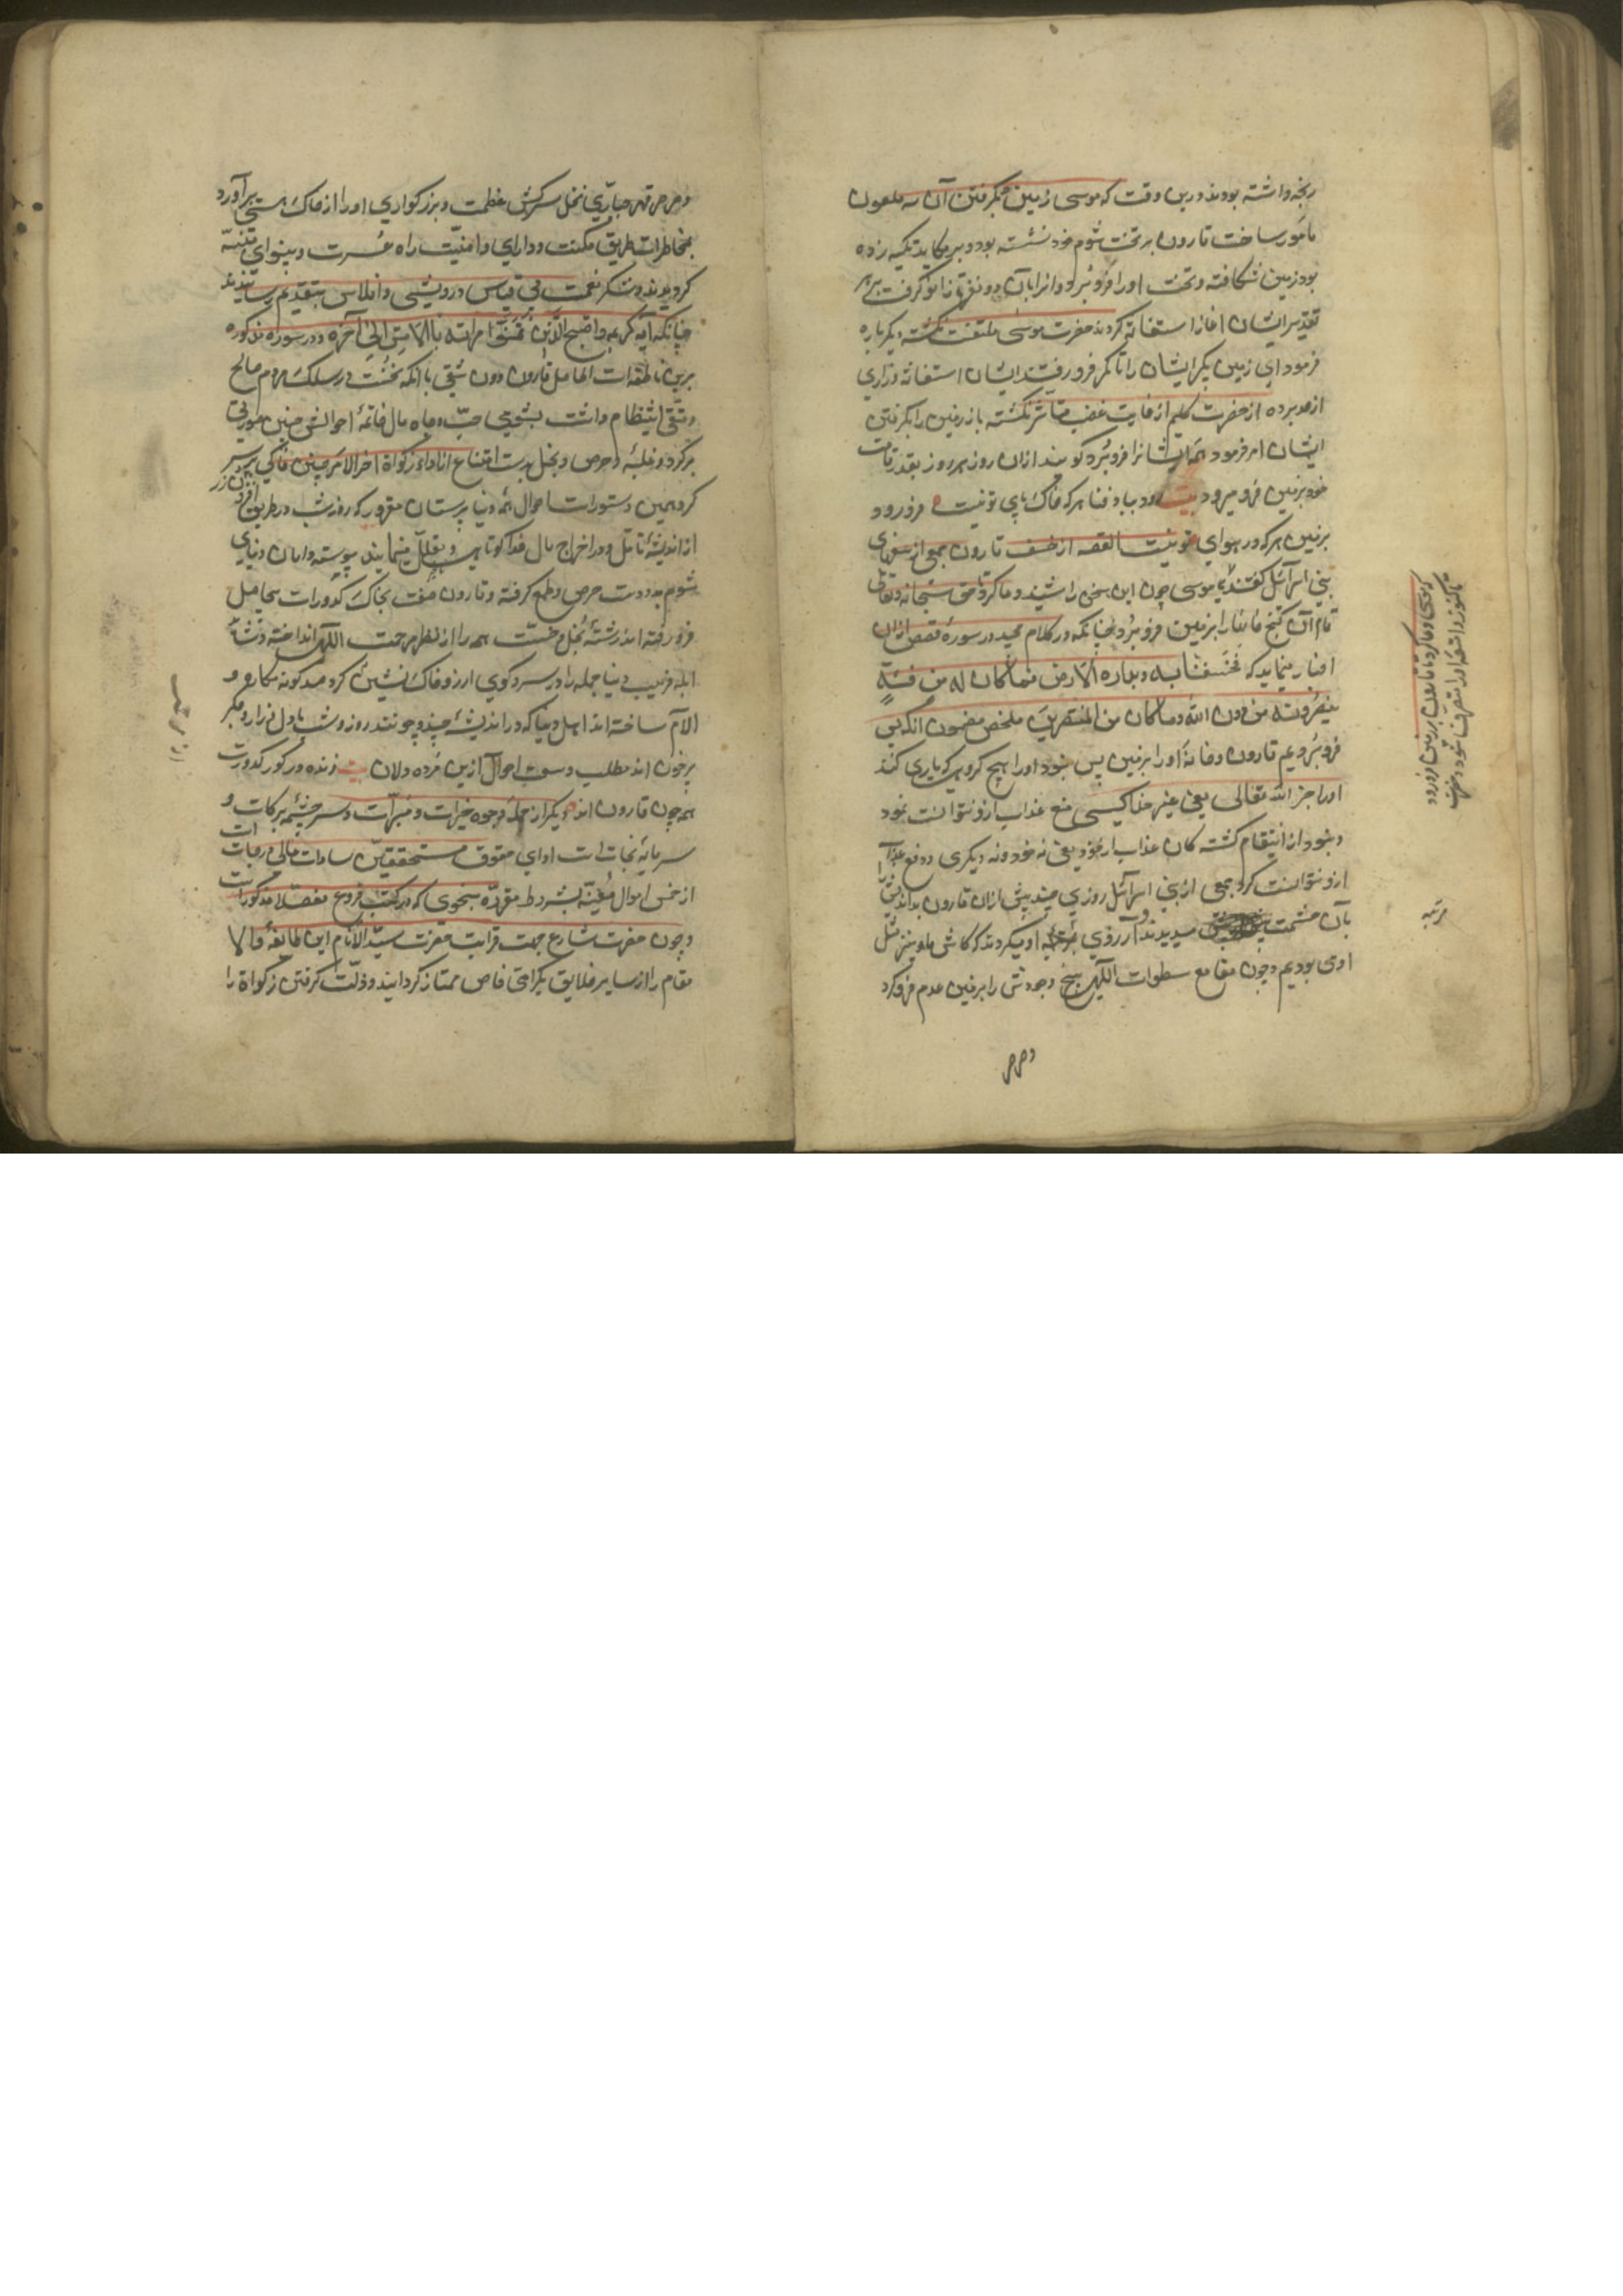 رنجه داشته بودند درین وقت که موسی زمین بگرفتن آن سه ملعون
مأمور ساخت قارون بر تخت شوم خود نشسته بود و بر مکاید تکیه زده
بود زمین شکافته و تخت او را فرو برد و انرا بآن دو نفر تا زانو گرفت
تقدیر ایشان اغاز استغاثه کردند حضرت موسی ملتفت نکشته دیکر باره
فرمود ای زمین بکیر ایشان را تا کمر فرو رفتند ایشان استغاثه و زاری
از حد برده از حضرت کلیم از غایت غضب متأثر نکشته باز زمین را بکرفتن
ایشان امر فرمود همه ایشانرا فرو برد کویند ازان روز هر روز بقدر قامت
خود بزمین فرو میرود بیت رود بباد فنا هر که خاک پای تو نیست فرو رود
بزمین هر که در هوای تو نیست القصه از خسف قارون جمعی از سفهای
بنی اسرائیل کفتند موسی چون این سخن را شنید دعا کرد تا حق سبحانه وتعالی
تمام آن کنج خانها را بزمین فرو برد چنانکه در کلام مجید در سورهٔ قصص ازان
اخبار مینماید که فخسفنا به وبداره الارض فما کان له من فئة
ینصرونه من دون الله وما کان من المنتصرین ملخص مضمون آنکه پس
فرو بردیم قارون و خانهٔ او را بزمین پس نبود او را هیچ کروهی که یاری کند
او را جز الله تعالی یعنی غیر خدا کسی منع عذاب ازو نتوانست نمود
و نبود از انتقام کشنده کان عذاب از خود یعنی نه خود و نه دیکری دفع عذاب
ازو نتوانست کرد جمعی از بنی اسرائیل روزی چند پیش ازان قارون بد اندیش را
بآن حشمت میدیدند و آرزوی مرتبه او میکردند که کاش ما هم بمنزل
اوی بودیم و چون مقامع سطوات الهی بیخ وجودش را بزمین عدم فرو کرد
وصرصر
که موسی دعا کرد تا قارون بزمین فرو رود
تا کنوز و اشیاء او را متصرف شود و حضرت
مرتبه
وصرصر قهر جباری نخل سرکش عظمت و بزرکواری او را از خاک هستی برآورد
بمخاطرات طریق مکنت و دارای و امنیت راه عسرت و بینوای متنبه
کردیدند و شکر نعمت بی قیاس درویشی و افلاس بتقدیم رسانیدند
چنانکه آیه کریمه واصبح الذین تمنوا مکانه بالامس الی آخره در سوره مذکوره
برین ناطقه است الحاصل قارون دون شقی با آنکه نخست در سلک مردم صالح
و متقی انتظام داشت بشومی حب جاه و مال خاتمهٔ احوالش چنین صورتی
بر کرد و غلبهٔ حرص و بخل بدست امتناع از اداء زکواة اخر الامر چنین خاکی بر سر
کرد همین دستورات احوال همه دنیا پرستان مغرور که روز و شب در طریق افزون زر
از اندیشه تأمل و در اخراج مال خدا کوتاهی و تعلل مینمایند پیوسته دامان دنیای
شوم بدو دست حرص و طمع کرفته و قارون صفت بخاک کدورات بیحاصل
فرو رفته اند رشتهٔ بخل و خست همه را از نظر مرحمت الهی انداخته و نشأة
ابله فریب دنیا جمله را در سر کوی ارزو خاک نشین کرده صد کونه مکاره و
الام ساخته اند اهل دنیا که در اندیشهٔ چند و چونند روز و شب با دل فزار و جکر
پرخون اند مطلب وسعت احوال ازین مرده دلان بیت زنده در کور کدورت
همچون قارون اند دیکر از جملهٔ وجوه خیرات و مبرات و سر چشمه برکات و
سرمایهٔ نجات است ادای حقوق مستحقین سادات عالی درجات است
از خمس اموال معینه بشروط مقرره بنحوی که در کتب فروع مفصلا مذکور است
و چون حضرت شارع جهت قرابت حضرت سید الانام این طایفهٔ والا
مقام را از سایر خلایق بکرامتی خاص ممتاز کردانید و ذلت کرفتن زکواة را